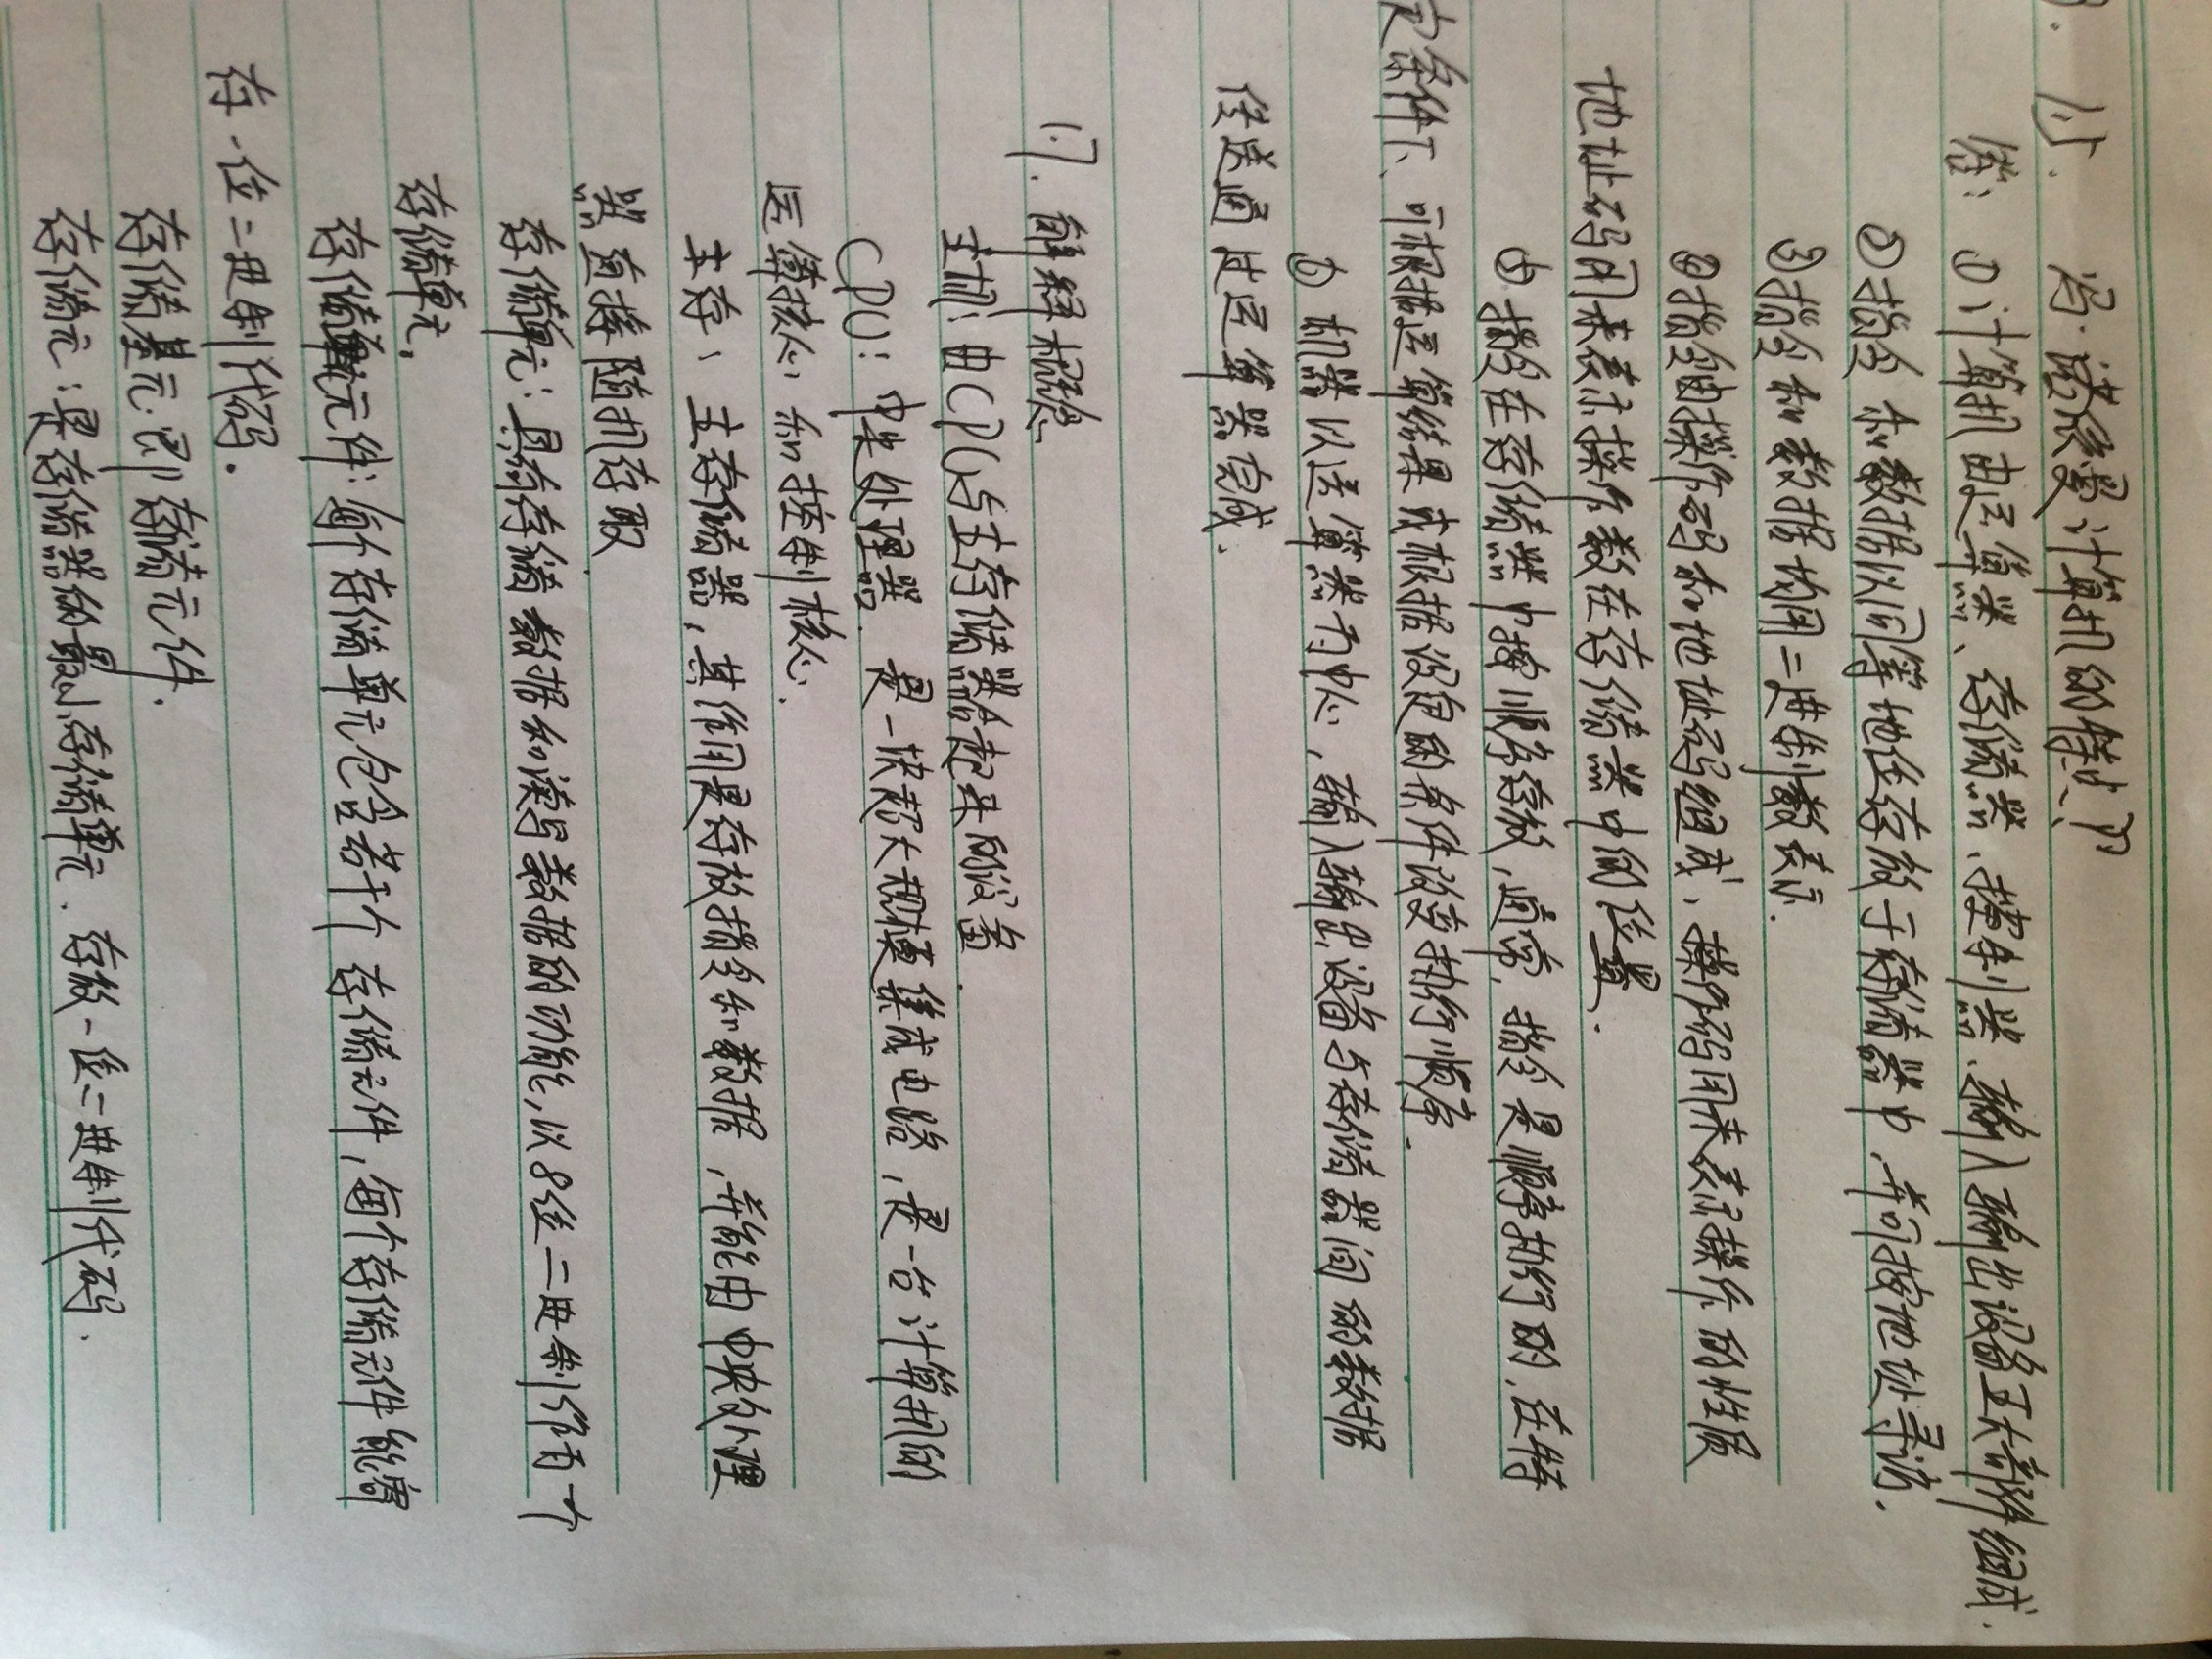 1.5. 冯·诺依曼计算机的特点
答：①计算机由运算器、存储器、控制器、输入输出设备五大部件组成.
②指令和数据以同等地位存放于存储器中，并可按地址寻访.
③指令和数据均用二进制数表示.
④指令由操作码和地址码组成，操作码用来表示操作的性质
地址码用来表示操作数在存储器中的位置.
⑤指令在存储器中按顺序存放，通常，指令是顺序执行的，在特
定条件下、可根据运算结果或根据设定的条件改变执行顺序.
⑥机器以运算器为中心，输入输出设备与存储器间的数据
传送通过运算器完成.
1.7. 解释概念
主机：由CPU与主存储器合起来的设备.
CPU：中央处理器. 是一块超大规模集成电路，是一台计算机的
运算核心和控制核心.
主存：主存储器，其作用是存放指令和数据，并能由中央处理
器直接随机存取.
存储单元：具有存储数据和读写数据的功能，以8位二进制作为一个
存储单元.
存储元件：每个存储单元包含若干个存储元件，每个存储元件能寄
存一位二进制代码.
存储基元：即存储元件.
存储元：是存储器的最小存储单元. 存放一位二进制代码.